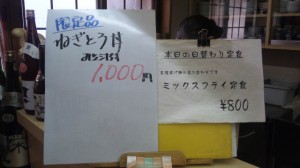 限定品
ねぎとろ丼
みそ汁付
1,000円
本日の日替わり定食
ミックスフライ定食
¥800